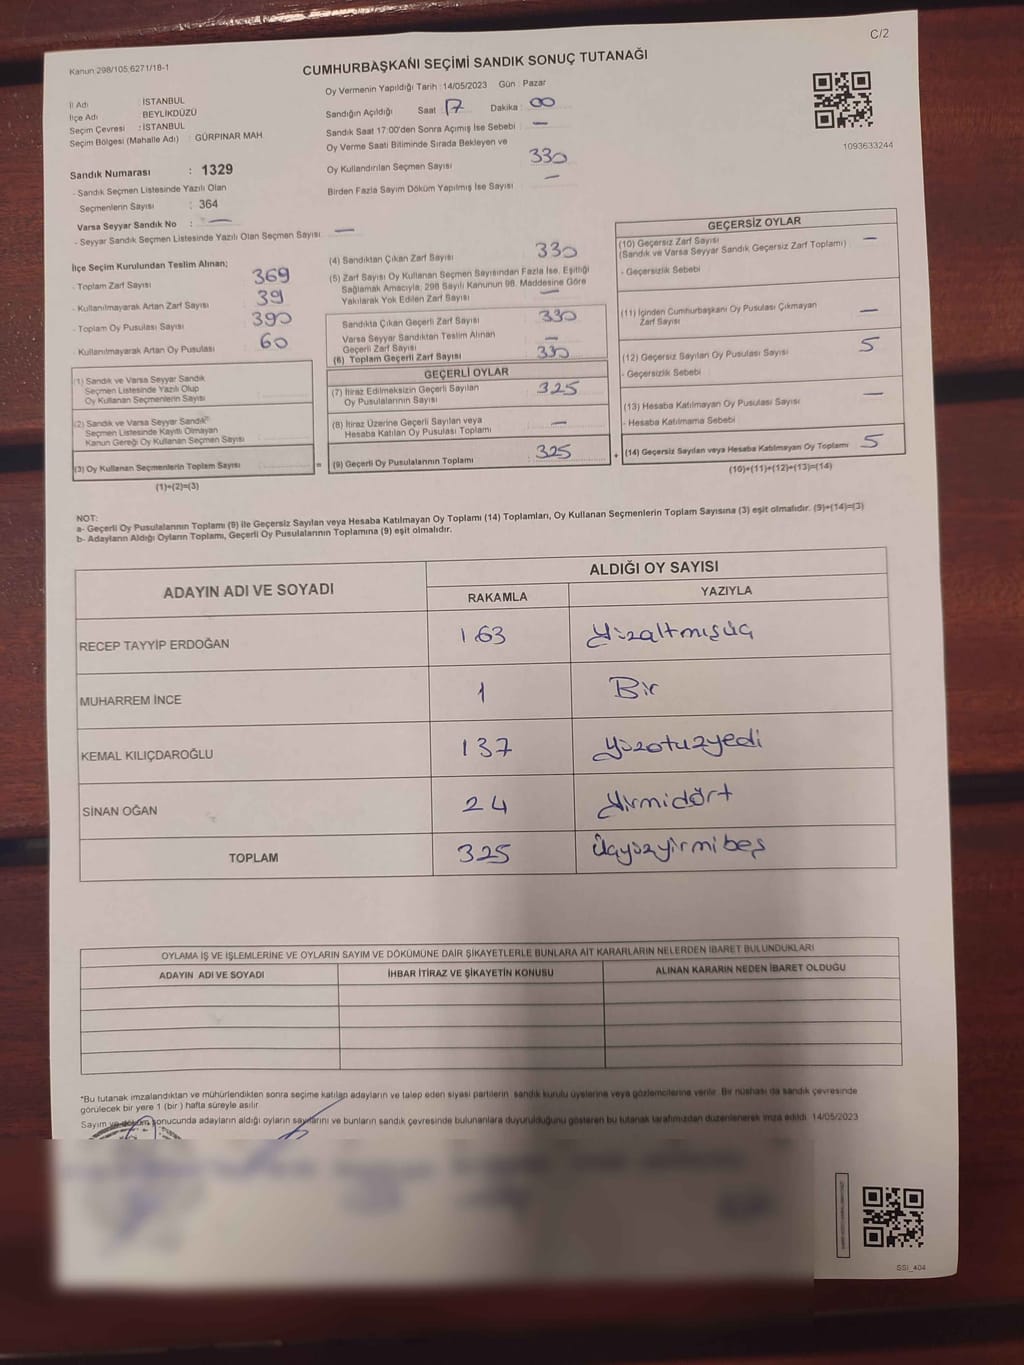 C/2
Kanun 298/105;6271/18-1
CUMHURBAŞKANI SEÇİMİ SANDIK SONUÇ TUTANAĞI
Oy Vermenin Yapıldığı Tarih : 14/05/2023 Gün : Pazar
İl Adı : İSTANBUL
İlçe Adı : BEYLİKDÜZÜ
Seçim Çevresi : İSTANBUL
Seçim Bölgesi (Mahalle Adı) : GÜRPINAR MAH.
Sandığın Açıldığı Saat 17 Dakika : 00
Sandık Saat 17:00'den Sonra Açımış İse Sebebi : —
Oy Verme Saati Bitiminde Sırada Bekleyen ve
Oy Kullandırılan Seçmen Sayısı 330
Birden Fazla Sayım Döküm Yapılmış İse Sayısı : —
1093633244
Sandık Numarası : 1329
- Sandık Seçmen Listesinde Yazılı Olan
Seçmenlerin Sayısı : 364
Varsa Seyyar Sandık No : —
- Seyyar Sandık Seçmen Listesinde Yazılı Olan Seçmen Sayısı : —
İlçe Seçim Kurulundan Teslim Alınan;
- Toplam Zarf Sayısı : 369
- Kullanılmayarak Artan Zarf Sayısı : 39
- Toplam Oy Pusulası Sayısı : 390
- Kullanılmayarak Artan Oy Pusulası : 60
(1) Sandık ve Varsa Seyyar Sandık
Seçmen Listesinde Yazılı Olup
Oy Kullanan Seçmenlerin Sayısı :
(2) Sandık ve Varsa Seyyar Sandık
Seçmen Listesinde Kayıtlı Olmayan
Kanun Gereği Oy Kullanan Seçmen Sayısı :
(3) Oy Kullanan Seçmenlerin Toplam Sayısı : =
(1)+(2)=(3)
(4) Sandıktan Çıkan Zarf Sayısı : 330
(5) Zarf Sayısı Oy Kullanan Seçmen Sayısından Fazla İse, Eşitliği
Sağlamak Amacıyla; 298 Sayılı Kanunun 98. Maddesine Göre
Yakılarak Yok Edilen Zarf Sayısı : —
Sandıkta Çıkan Geçerli Zarf Sayısı : 330
Varsa Seyyar Sandıktan Teslim Alınan
Geçerli Zarf Sayısı : —
(6) Toplam Geçerli Zarf Sayısı : 330
GEÇERLİ OYLAR
(7) İtiraz Edilmeksizin Geçerli Sayılan
Oy Pusulalarının Sayısı : 325
(8) İtiraz Üzerine Geçerli Sayılan veya
Hesaba Katılan Oy Pusulası Toplamı : —
(9) Geçerli Oy Pusulalarının Toplamı : 325 +
GEÇERSİZ OYLAR
(10) Geçersiz Zarf Sayısı
(Sandık ve Varsa Seyyar Sandık Geçersiz Zarf Toplamı) : —
- Geçersizlik Sebebi
(11) İçinden Cumhurbaşkanı Oy Pusulası Çıkmayan
Zarf Sayısı : —
(12) Geçersiz Sayılan Oy Pusulası Sayısı : 5
- Geçersizlik Sebebi
(13) Hesaba Katılmayan Oy Pusulası Sayısı : —
- Hesaba Katılmama Sebebi
(14) Geçersiz Sayılan veya Hesaba Katılmayan Oy Toplamı : 5
(10)+(11)+(12)+(13)=(14)
NOT:
a- Geçerli Oy Pusulalarının Toplamı (9) ile Geçersiz Sayılan veya Hesaba Katılmayan Oy Toplamı (14) Toplamları, Oy Kullanan Seçmenlerin Toplam Sayısına (3) eşit olmalıdır. (9)+(14)=(3)
b- Adayların Aldığı Oyların Toplamı, Geçerli Oy Pusulalarının Toplamına (9) eşit olmalıdır.
ADAYIN ADI VE SOYADI ALDIĞI OY SAYISI
RAKAMLA YAZIYLA
RECEP TAYYİP ERDOĞAN 163 Yüzaltmışüç
MUHARREM İNCE 1 Bir
KEMAL KILIÇDAROĞLU 137 Yüzotuzyedi
SİNAN OĞAN 24 Yirmidört
TOPLAM 325 Üçyüzyirmibeş
OYLAMA İŞ VE İŞLEMLERİNE VE OYLARIN SAYIM VE DÖKÜMÜNE DAİR ŞİKAYETLERLE BUNLARA AİT KARARLARIN NELERDEN İBARET BULUNDUKLARI
ADAYIN ADI VE SOYADI İHBAR İTİRAZ VE ŞİKAYETİN KONUSU ALINAN KARARIN NEDEN İBARET OLDUĞU
*Bu tutanak imzalandıktan ve mühürlendikten sonra seçime katılan adayların ve talep eden siyasi partilerin sandık kurulu üyelerine veya gözlemcilerine verilir. Bir nüshası da sandık çevresinde
görülecek bir yere 1 (bir ) hafta süreyle asılır.
Sayım ve döküm sonucunda adayların aldığı oyların sayılarını ve bunların sandık çevresinde bulunanlara duyurulduğunu gösteren bu tutanak tarafımızdan düzenlenerek imza edildi. 14/05/2023
SSI_404